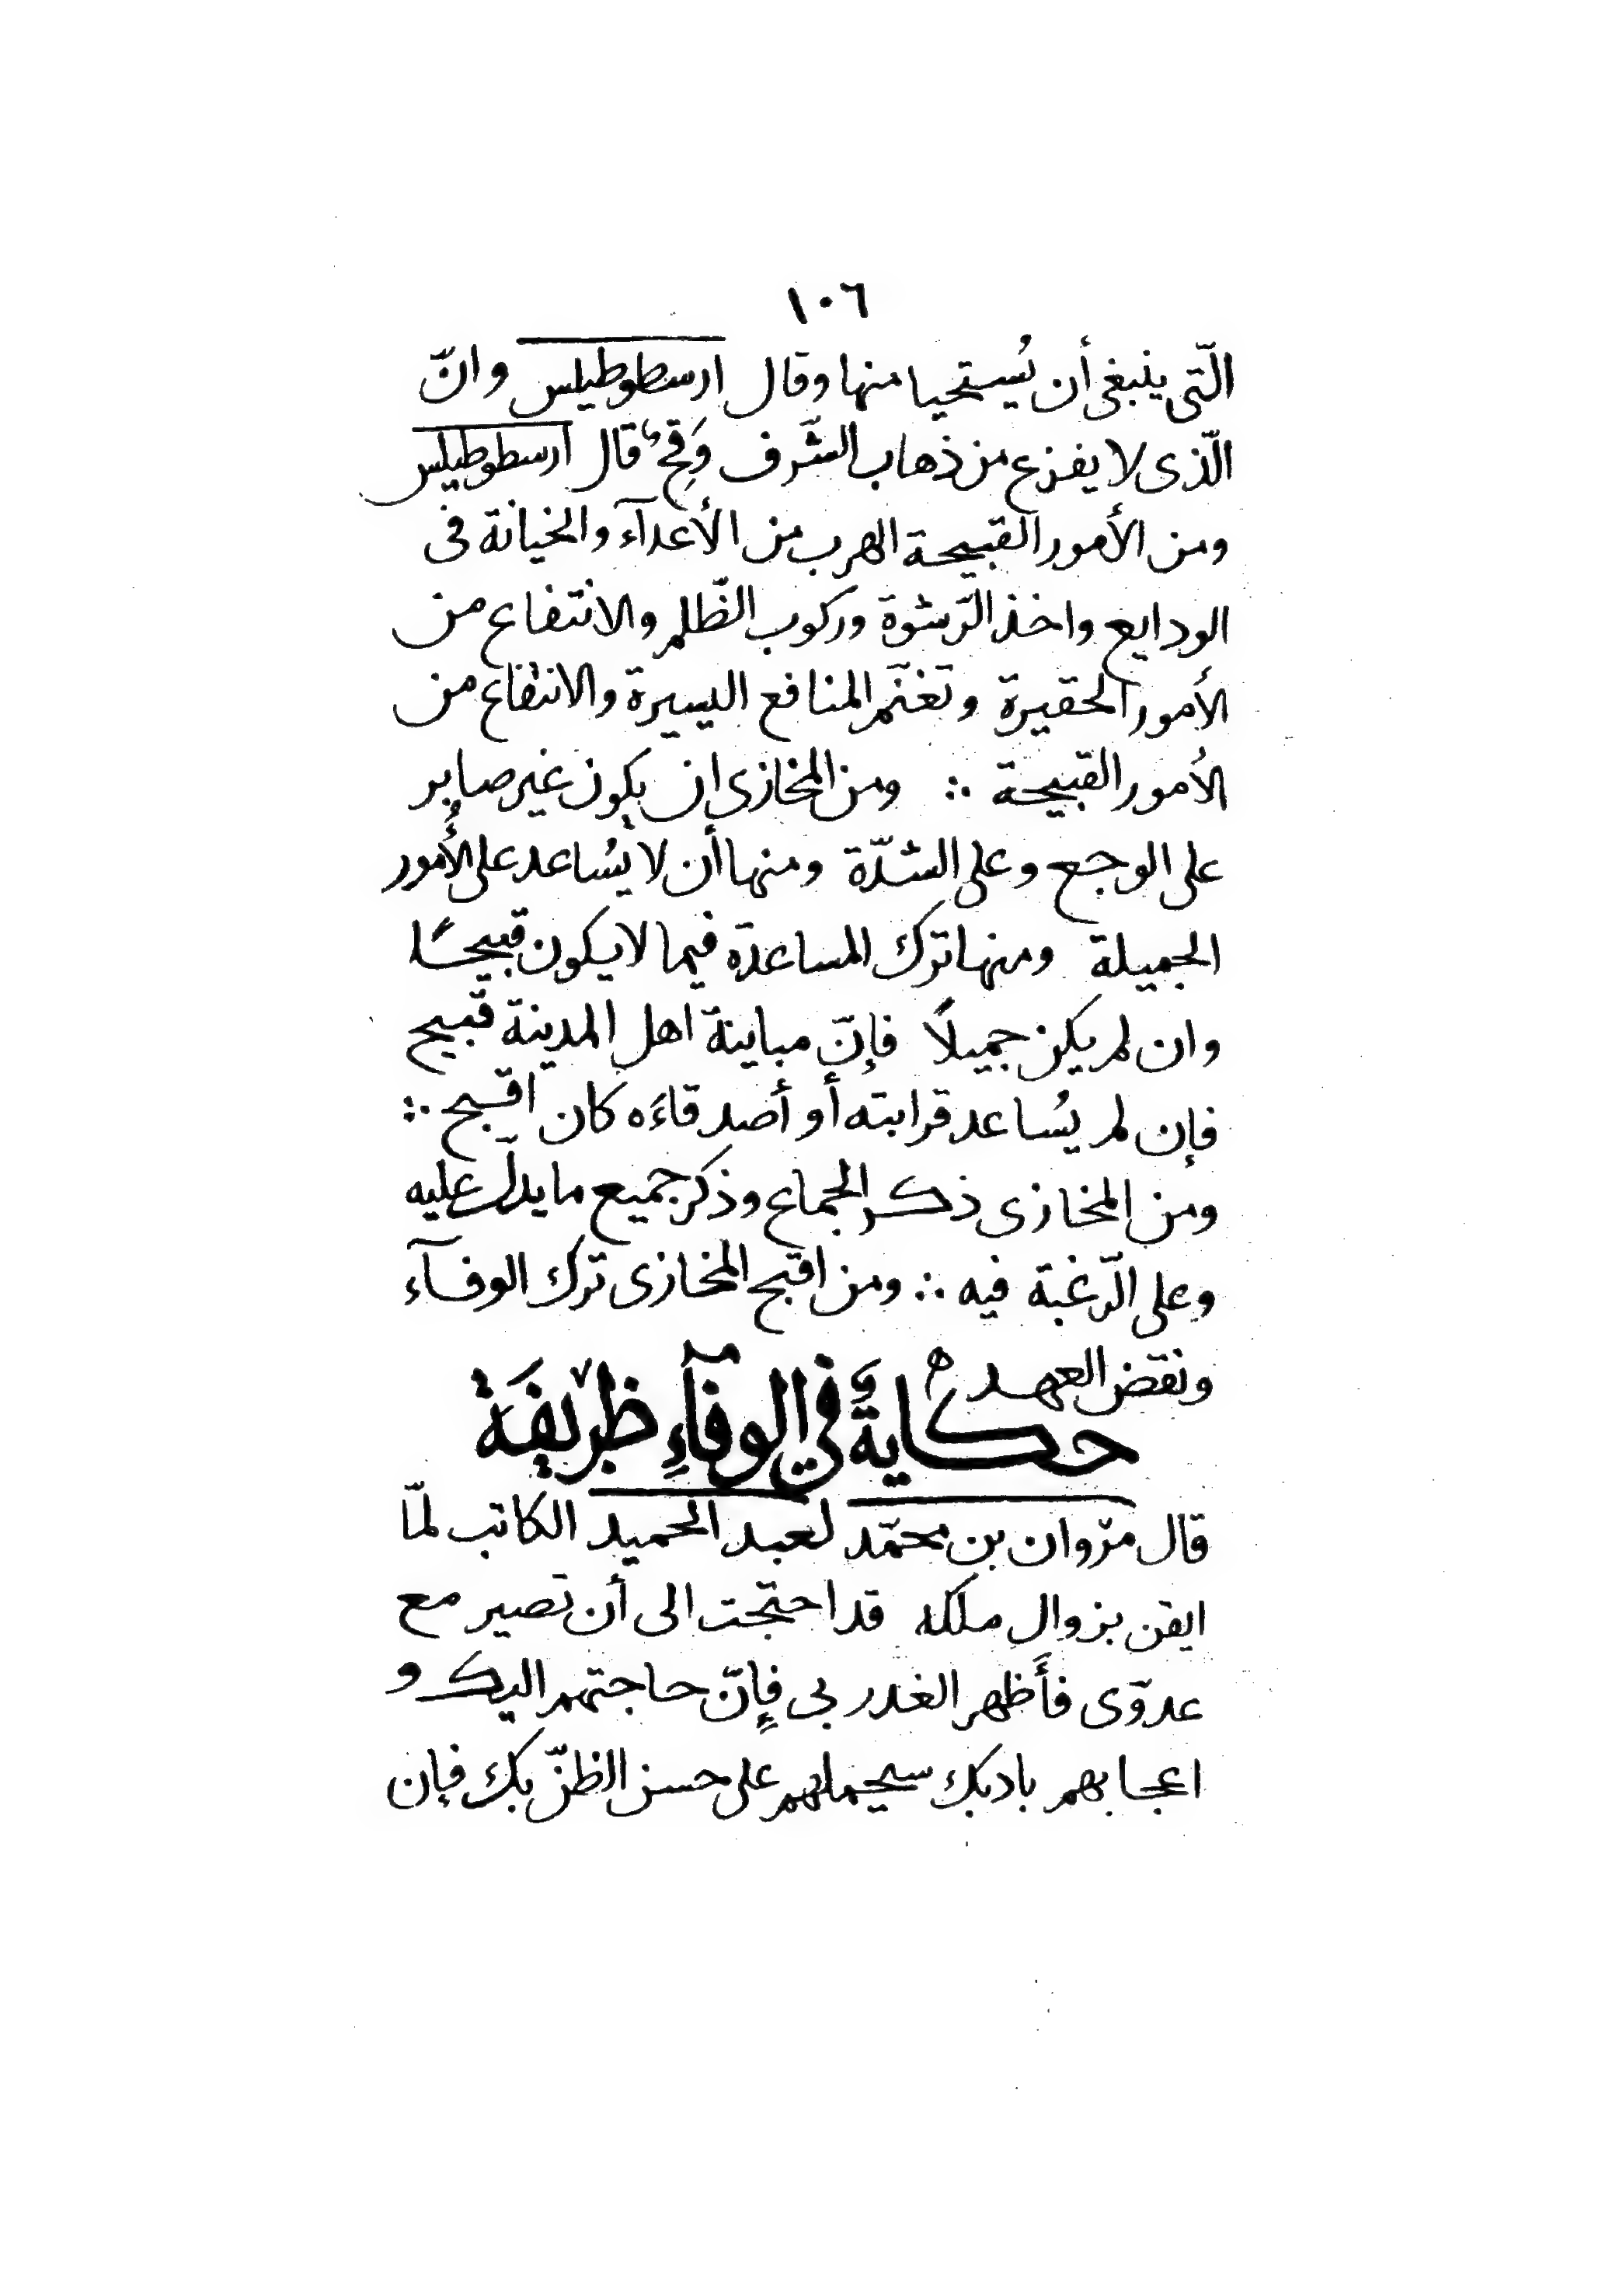 ١٠٦
الّتى ينبغى أن يُستحيا منها وقال ارسطوطيلس وانّ
الّذى لا يفزع من ذهاب الشّرف وَقِحٌ قال ارسطوطيلس
ومن الأمور القبيحة الهرب من الأعدآء والخيانة فى
الودايع واخذ الرّشوة وركوب الظّلم والانتفاع من
الأمور الحقيرة وتغنّم المنافع اليسيرة والانتفاع من
الأمور القبيحة ∴ ومن المخازى ان يكون غير صابر
على الوجع وعلى الشدّة ومنها أن لا يُساعد على الأُمور
الجميلة ومنها ترك المساعدة فيما لا يكون قبيحًا
وان لم يكن جميلًا فإنّ مباينة اهل المدينة قبيح
فإن لم يُساعد قرابته أو أصدقاءَه كان اقبح ∴
ومن المخازى ذكر الجماع وذكر جميع ما يدلّ عليه
وعلى الرّغبة فيه ∴ ومن اقبح المخازى ترك الوفآء
ونقض العهد ه
حكايةٌ في الوفآءِ ظريفَة
قال مرْوان بن محمّد لعبد الحميد الكاتب لمّا
ايقن بزوال ملكه قد احتجت الى أن تصير مع
عدوّى فأَظهر الغدر بى فإِنّ حاجتهم اليك و
اعجابهم بادبك سيحملهم على حسن الظنّ بك فإن